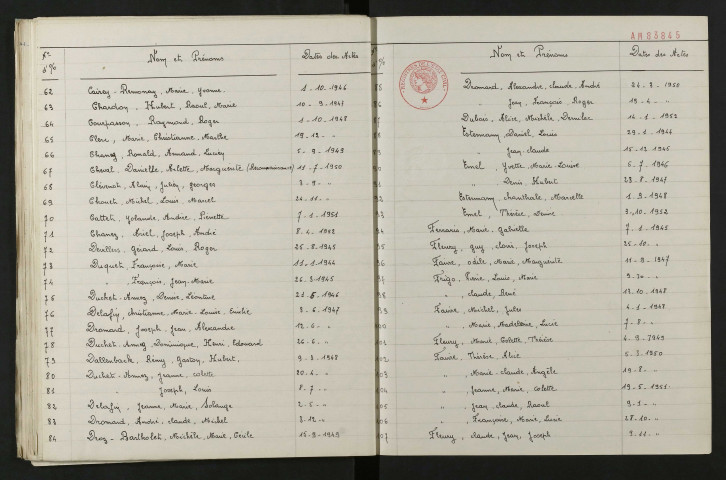 Nos d'o/o Nom et Prénoms Dates des Actes
62 Cairey-Remonay, Marie Yvonne 1.10.1946
63 Chardon, Hubert, Raoul, Marie 10.9.1947
64 Courpasson, Raymond, Roger 1.10.1948
65 Clerc, Marie, Christianne, Marthe 19.12. "
66 Chaney, Ronald, Armand, Lucien 5.9.1949
67 Cheval, Danielle, Arlette, Marguerite (Reconnaissance) 11.7.1950
68 Clément, Alain, Julien, Georges 3.9. "
69 Chouet, Michel, Louis, Marcel 24.11. "
70 Cattet, Yolande, Andrée, Pierrette 7.1.1951
71 Chaney, Ariel, Joseph, André 8.4.1952
72 Devillers, Gérard, Louis, Roger 25.8.1945
73 Duquet, Françoise, Marie 11.1.1944
74 " François, Jean-Marie 26.3.1945
75 Duchet-Annez, Denise, Léontine 21.5.1946
76 Delafin, Christianne, Marie-Louise, Emilie 3.6.1947
77 Dromard, Joseph-Jean, Alexandre 12.6. "
78 Duchet-Annez, Dominique, Henri, Edouard 26.6. "
79 Dallenbach, Rémy, Gaston, Hubert 9.3.1948
80 Duchet-Annez, Jeanne, Colette 20.4. "
81 " Joseph, Louis 8.7. "
82 Delafin, Jeanne, Marie, Solange 2.5. "
83 Dromard, André, Claude, Michel 3.12. "
84 Droz-Bartholet, Michèle, Marie, Cécile 15.9.1949
AM83845
Nom et Prénoms Dates des Actes
85 Dromard, Alexandre, Claude, André 24.3.1950
86 " Jean, François, Roger 19.4. "
87 Dubois, Alice, Michèle 14.1.1952
Estermann, Daniel, Louis 29.1.1944
" Jean-Claude 15.12.1945
Emel, Yvette, Marie-Louise 5.7.1946
91 " Denis, Hubert 23.8.1947
92 Estermann, Chanthale, Marcelle 1.9.1948
93 Emel, Thérèse, Denise 30.10.1952
94 Ferraris, Marie-Gabrielle 7.1.1945
95 Fleury, Guy, Clovis, Joseph 25.10. "
96 Faivre, Odile, Marie, Marguerite 11.9.1947
97 Frigo, Pierre, Louis, Marie 9.10. "
98 " Claude, René 13.10.1948
99 Faivre, Michel, Jules 4.1.1948
" Marie, Madeleine, Lucie 7.8. "
Fleury, Marie, Colette, Thérèse 4.9.1949
102 Faivre, Thérèse, Alice 5.3.1950
103 " Marie-Claude, Angèle 19.8. "
104 " Jeanne, Marie, Colette 19.5.1951
105 " Jean, Claude, Raoul 9.1. "
106 " Françoise, Marie, Lucie 28.10. "
107 Fleury, Claude, Jean, Joseph 3.11. "